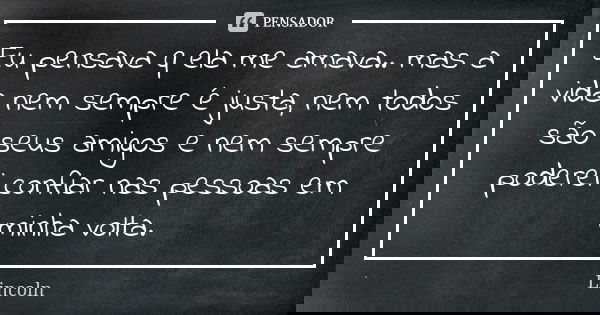 PENSADOR
Eu pensava q ela me amava... mas a
vida nem sempre é justa, nem todos
são seus amigos e nem sempre
poderei confiar nas pessoas em
minha volta.
Lincoln